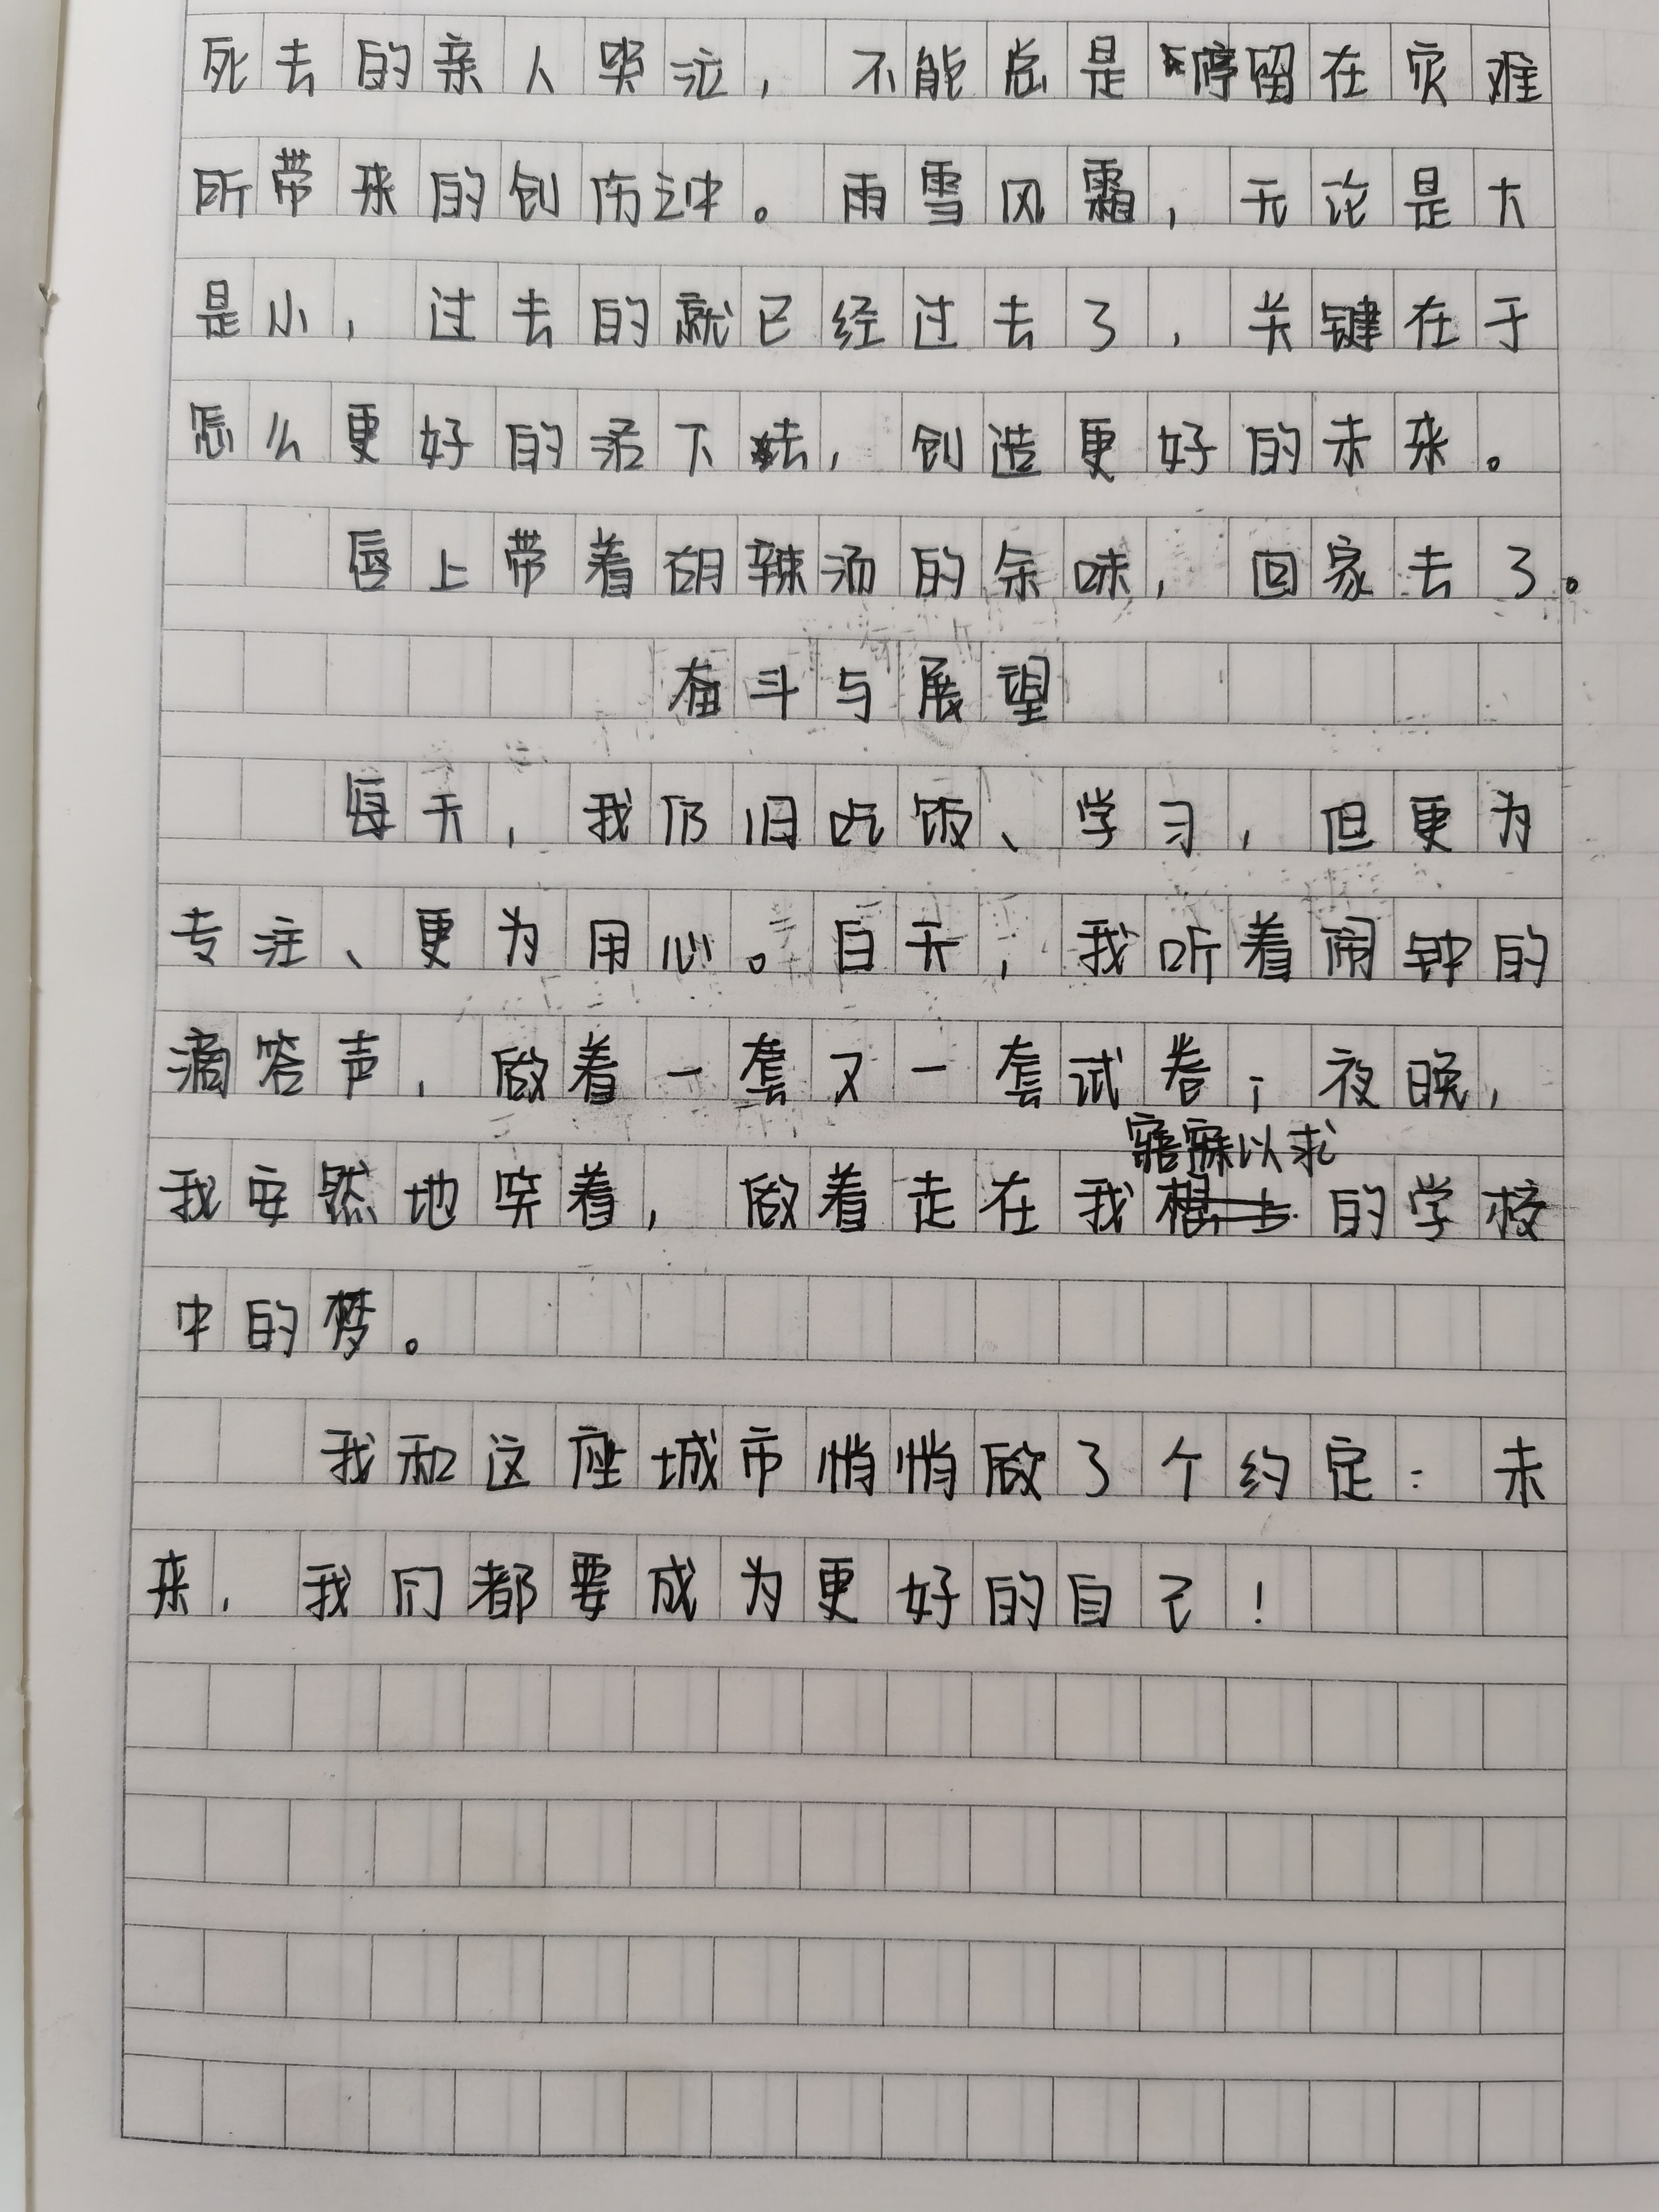 死去的亲人哭泣，不能总是停留在灾难
所带来的创伤之中。雨雪风霜，无论是大
是小，过去的就已经过去了，关键在于
怎么更好的活下去，创造更好的未来。
唇上带着胡辣汤的余味，回家去了。
奋斗与展望
每天，我仍旧吃饭、学习，但更为
专注、更为用心。白天，我听着闹钟的
滴答声，做着一套又一套试卷；夜晚，
寤寐以求
我安然地穿着，做着走在我的学校
中的梦。
我和这座城市悄悄做了个约定：未
来，我们都要成为更好的自己！